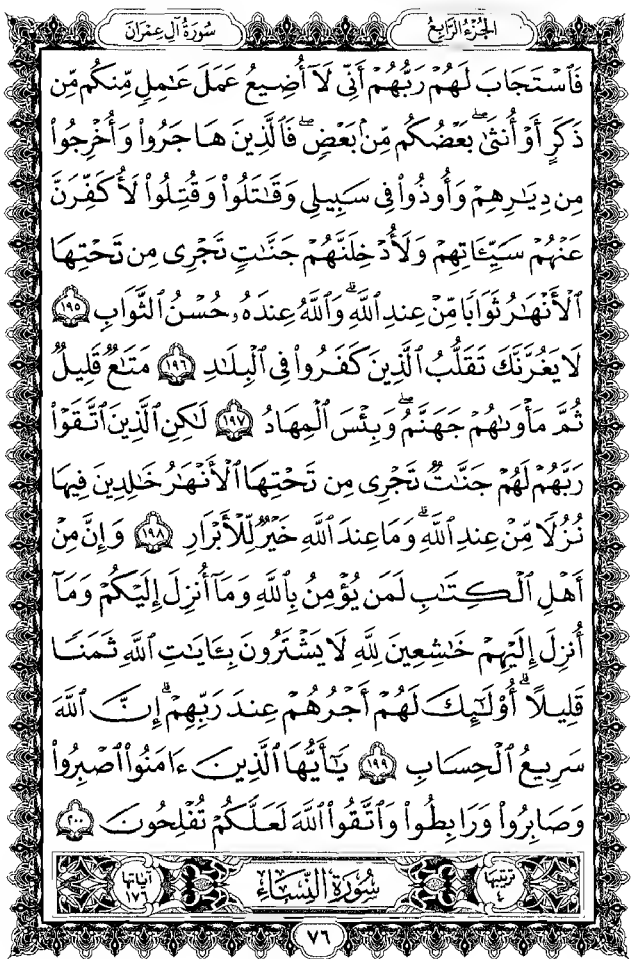 الجزء الرابع
سورة آل عمران
فَٱسْتَجَابَ لَهُمْ رَبُّهُمْ أَنِّى لَآ أُضِيعُ عَمَلَ عَٰمِلٍ مِّنكُم مِّن
ذَكَرٍ أَوْ أُنثَىٰۖ بَعْضُكُم مِّنۢ بَعْضٍۖ فَٱلَّذِينَ هَاجَرُوا۟ وَأُخْرِجُوا۟
مِن دِيَٰرِهِمْ وَأُوذُوا۟ فِى سَبِيلِى وَقَٰتَلُوا۟ وَقُتِلُوا۟ لَأُكَفِّرَنَّ
عَنْهُمْ سَيِّـَٔاتِهِمْ وَلَأُدْخِلَنَّهُمْ جَنَّٰتٍ تَجْرِى مِن تَحْتِهَا
ٱلْأَنْهَٰرُ ثَوَابًا مِّنْ عِندِ ٱللَّهِۗ وَٱللَّهُ عِندَهُۥ حُسْنُ ٱلثَّوَابِ ١٩٥
لَا يَغُرَّنَّكَ تَقَلُّبُ ٱلَّذِينَ كَفَرُوا۟ فِى ٱلْبِلَٰدِ ١٩٦ مَتَٰعٌ قَلِيلٌ
ثُمَّ مَأْوَىٰهُمْ جَهَنَّمُۖ وَبِئْسَ ٱلْمِهَادُ ١٩٧ لَٰكِنِ ٱلَّذِينَ ٱتَّقَوْا۟
رَبَّهُمْ لَهُمْ جَنَّٰتٌ تَجْرِى مِن تَحْتِهَا ٱلْأَنْهَٰرُ خَٰلِدِينَ فِيهَا
نُزُلًا مِّنْ عِندِ ٱللَّهِۗ وَمَا عِندَ ٱللَّهِ خَيْرٌ لِّلْأَبْرَارِ ١٩٨ وَإِنَّ مِنْ
أَهْلِ ٱلْكِتَٰبِ لَمَن يُؤْمِنُ بِٱللَّهِ وَمَآ أُنزِلَ إِلَيْكُمْ وَمَآ
أُنزِلَ إِلَيْهِمْ خَٰشِعِينَ لِلَّهِ لَا يَشْتَرُونَ بِـَٔايَٰتِ ٱللَّهِ ثَمَنًا
قَلِيلًاۗ أُو۟لَٰٓئِكَ لَهُمْ أَجْرُهُمْ عِندَ رَبِّهِمْۗ إِنَّ ٱللَّهَ
سَرِيعُ ٱلْحِسَابِ ١٩٩ يَٰٓأَيُّهَا ٱلَّذِينَ ءَامَنُوا۟ ٱصْبِرُوا۟
وَصَابِرُوا۟ وَرَابِطُوا۟ وَٱتَّقُوا۟ ٱللَّهَ لَعَلَّكُمْ تُفْلِحُونَ ٢٠٠
ترتيبها ٤
سُورَةُ النِّسَاءِ
آياتها ١٧٦
٧٦